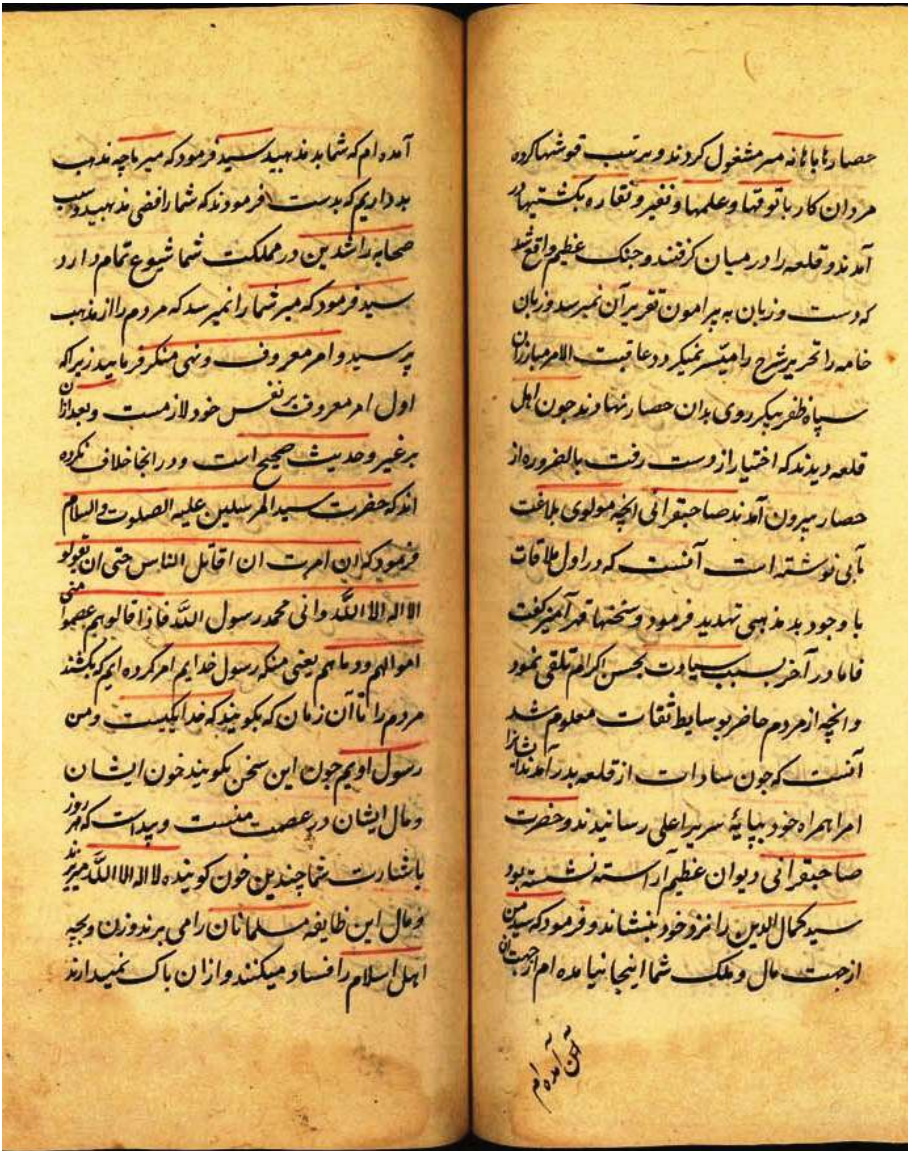 حصارها باهانه مسر مشغول کردند و بترتیب قوشنها کرده
مردان کار با توقها و علمها و نفیر و نقاره بکشتیها در
آمدند و قلعه را در میان گرفتند و جنک عظیم واقع شد
که دست و زبان به پیرامون تقریر آن نمیرسد و زبان
خامه را تحریر شرح را میسر نمیکردد عاقبت الامر مبارزان
سپاه ظفر پیکر روی بدان حصار نهادند جون اهل
قلعه دیدند که اختیار از دست رفت بالضروره از
حصار بیرون آمدند صاحبقرانی انچه مولوی بلاغت
مآبی نوشته است آنست که در اول ملاقات
با وجود بد مذهبی تهدید فرمود و سخنها قهر آمیز کفت
فاما در آخر بسبب سیادت بحسن اکرام تلقی نمود
و انچه از مردم حاضر بوسایط ثقات معلوم شد
آنست که جون سادات از قلعه بدر آمدند ایشانرا
امرا همراه خود بپایهٔ سریر اعلی رسانیدند و حضرت
صاحبقرانی دیوان عظیم آراسته نشسته بود
سید کمال الدین را نزد خود بنشاند و فرمود که سید من
از جهت مال و ملک شما اینجا نیامده ام از جهت آن
آمده ام
آمده ام که شما بد مذهبید سید فرمود که میر ما چه مذهب
بد داریم که بدست فرمودند که شما رافضی مذهبید و سب
صحابه راشدین در مملکت شما شیوع تمام دارد
سید فرمود که میر شما را نمیرسد که مردم را از مذهب
پرسید و امر معروف و نهی منکر فرمایید زیرا که
اول امر معروف بر نفس خود لازمست و بعد ازان
بر غیر و حدیث صحیح است و در انجا خلاف نکرده
اند که حضرت سید المرسلین علیه الصلوت والسلام
فرمود که ان امرت ان اقاتل الناس حتی ان یقولو
الا اله الا الله و انی محمد رسول الله فاذا قالوهم عصموا منی
اموالهم و دماهم یعنی منکه رسول خدایم امر کرده ایم که بکشند
مردم را تا آن زمان که بکویند که خدا یکیست و من
رسول اویم جون این سخن بکویند خون ایشان
و مال ایشان در عصمت منست و پیداست که هر روز
باشارت شما چندین خون کوینده لا اله الا الله میریزند
و مال این طایفه مسلمانان را می برند و زن و بچه
اهل اسلام را فساد میکنند و ازان باک نمیدارند